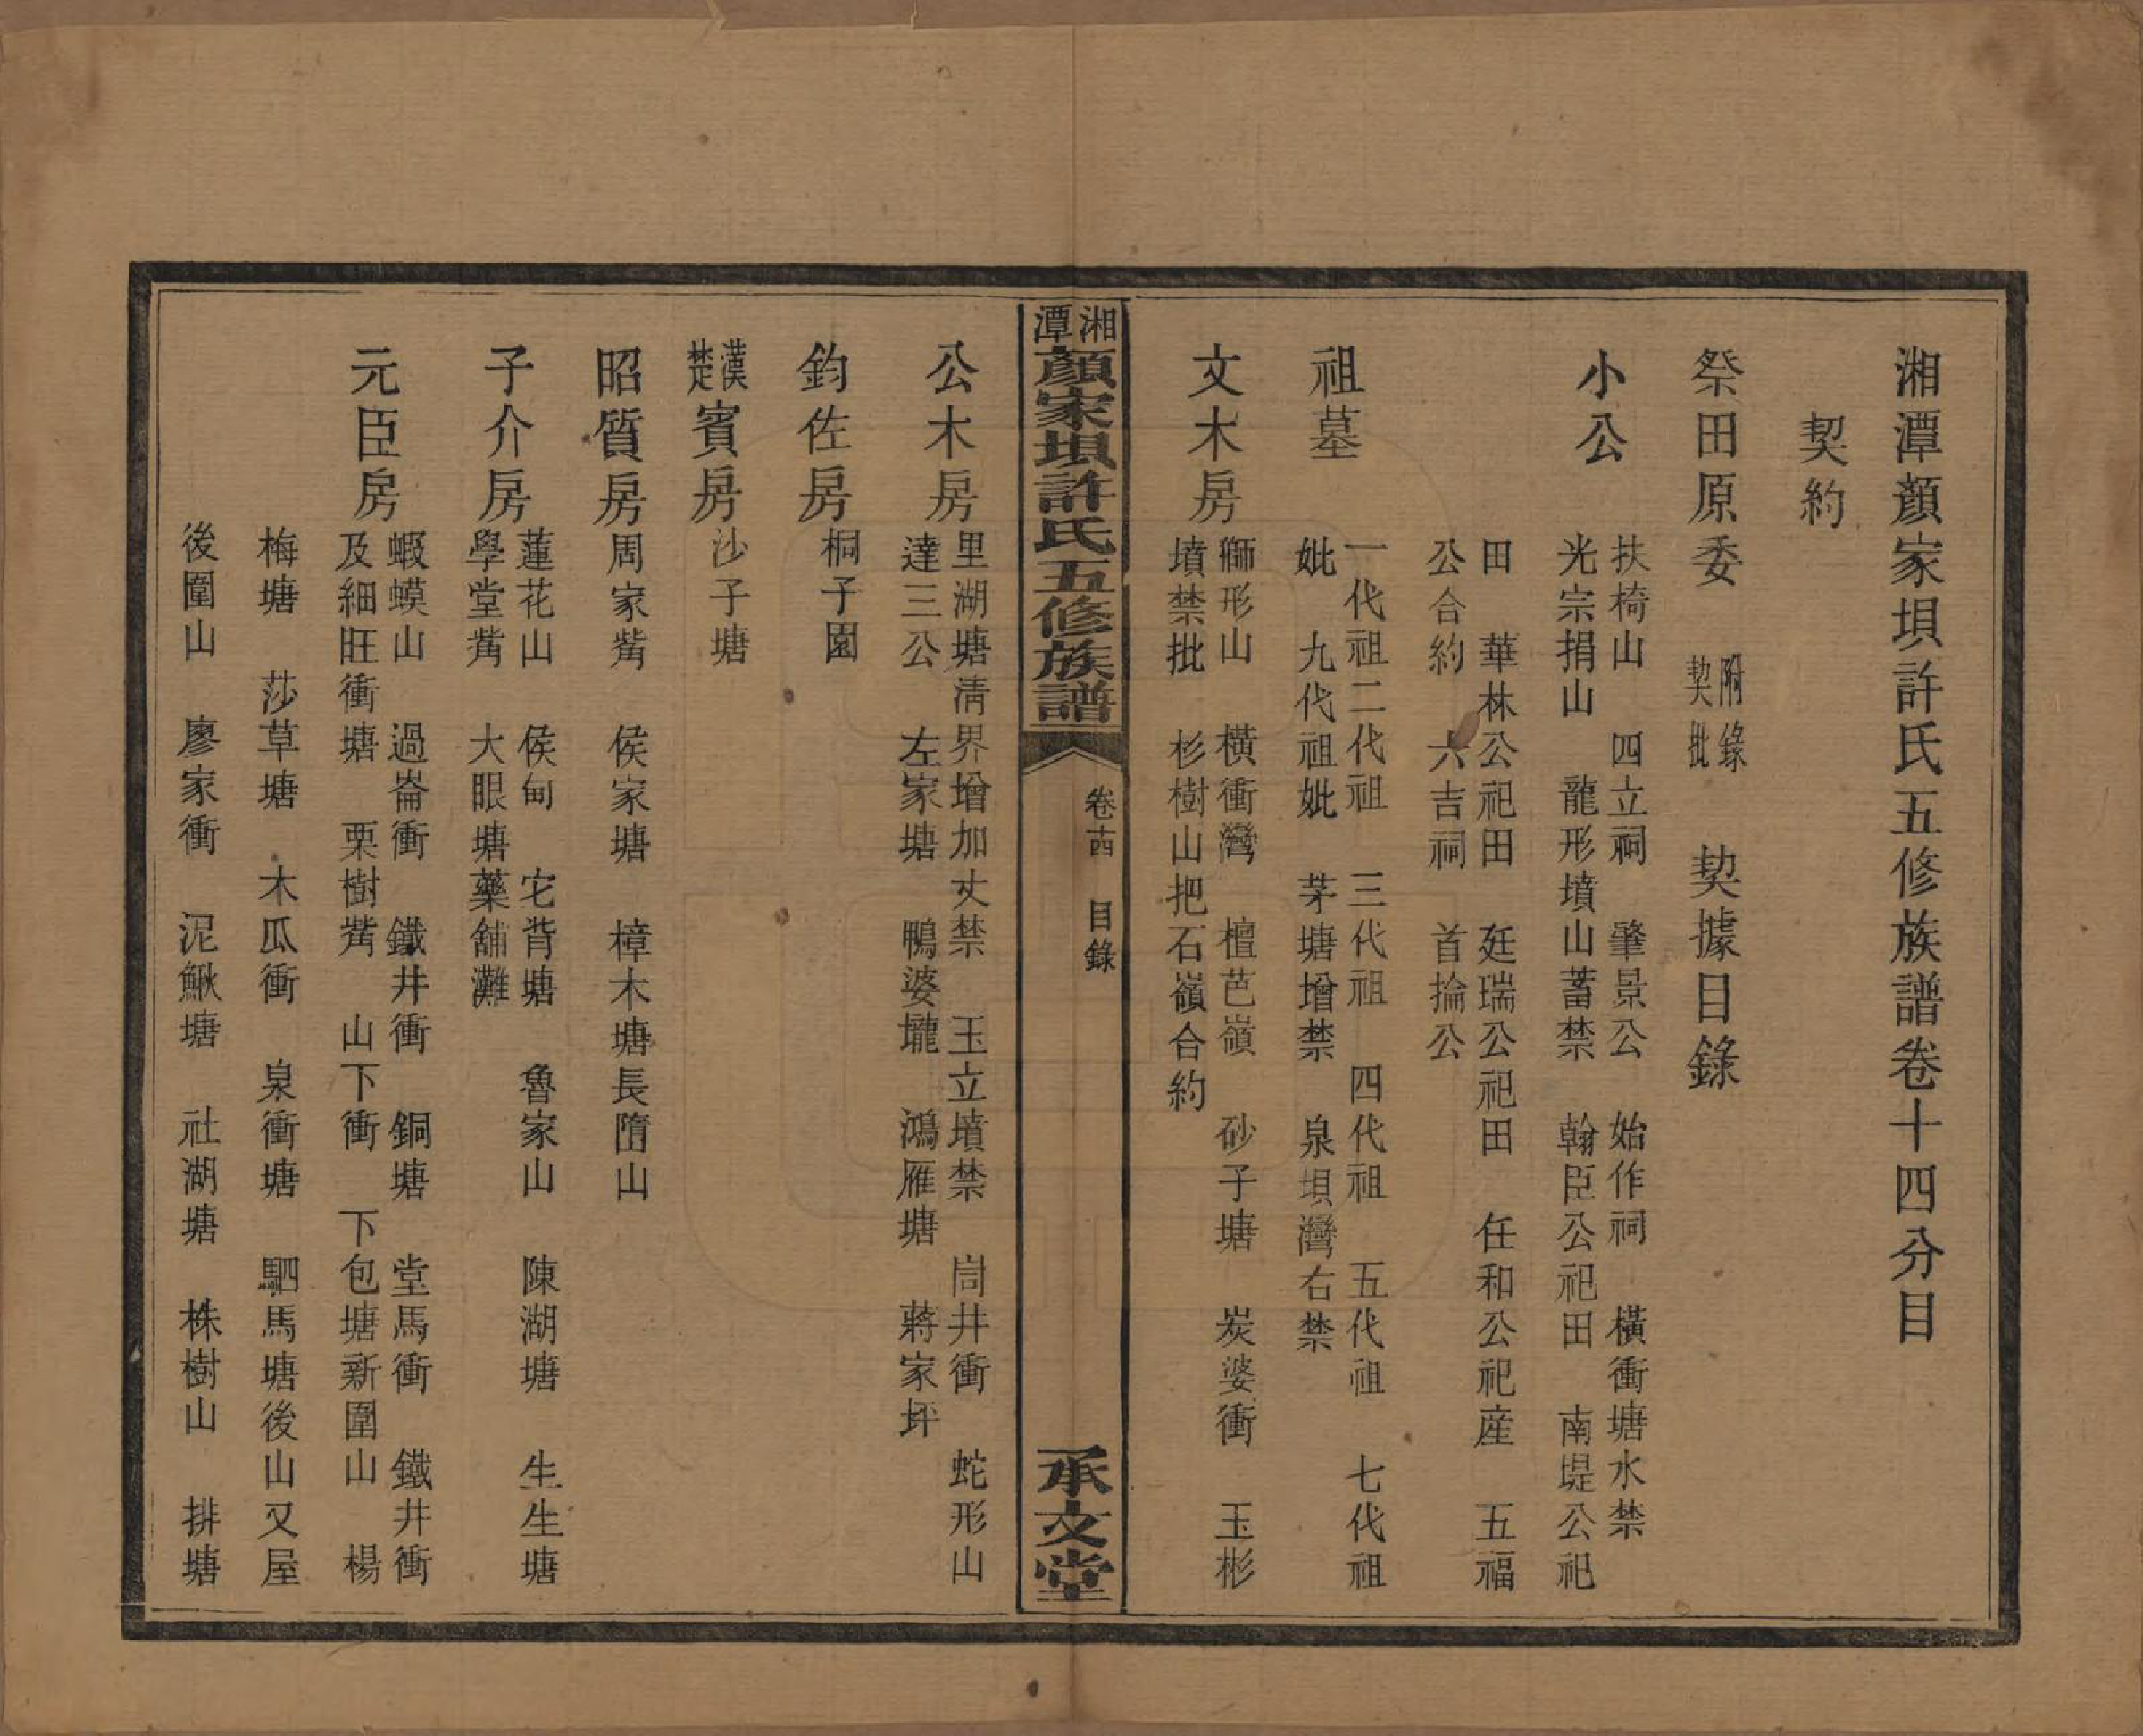 湘潭顏家垻許氏五修族譜卷十四分目
契約
祭田原委 附錄契批 契據目錄
小公
扶椅山 四立祠 肇景公 始作祠 橫衝塘水禁
光宗捐山 龍形墳山蓄禁 翰臣公祀田 南堤公祀
田 華林公祀田 廷瑞公祀田 任和公祀産 五福
公合約 六吉祠 首掄公
祖墓
一代祖二代祖 三代祖 四代祖 五代祖 七代祖
妣 九代祖妣 茅塘增禁 泉垻灣右禁
文木房
獅形山 橫衝灣 檀芭嶺 砂子塘 炭婆衝 玉彬
墳禁批 杉樹山把石嶺合約
湘潭顏家垻許氏五修族譜 卷十四 目錄 承文堂
公木房
里湖塘淸界增加丈禁 玉立墳禁 峝井衝 蛇形山
達三公 左家塘 鴨婆壠 鴻雁塘 蔣家坪
鈞佐房
桐子園
漢楚賓房
沙子塘
昭質房
周家觜 侯家塘 樟木塘長隋山
子介房
蓮花山 侯甸 宅背塘 魯家山 陳湖塘 生生塘
學堂觜 大眼塘藥舖灘
元臣房
蝦蟆山 過崙衝 鐵井衝 銅塘 堂馬衝 鐵井衝
及細旺衝塘 栗樹觜 山下衝 下包塘新圍山 楊
梅塘 莎草塘 木瓜衝 泉衝塘 駟馬塘後山又屋
後圍山 廖家衝 泥鰍塘 社湖塘 株樹山 排塘